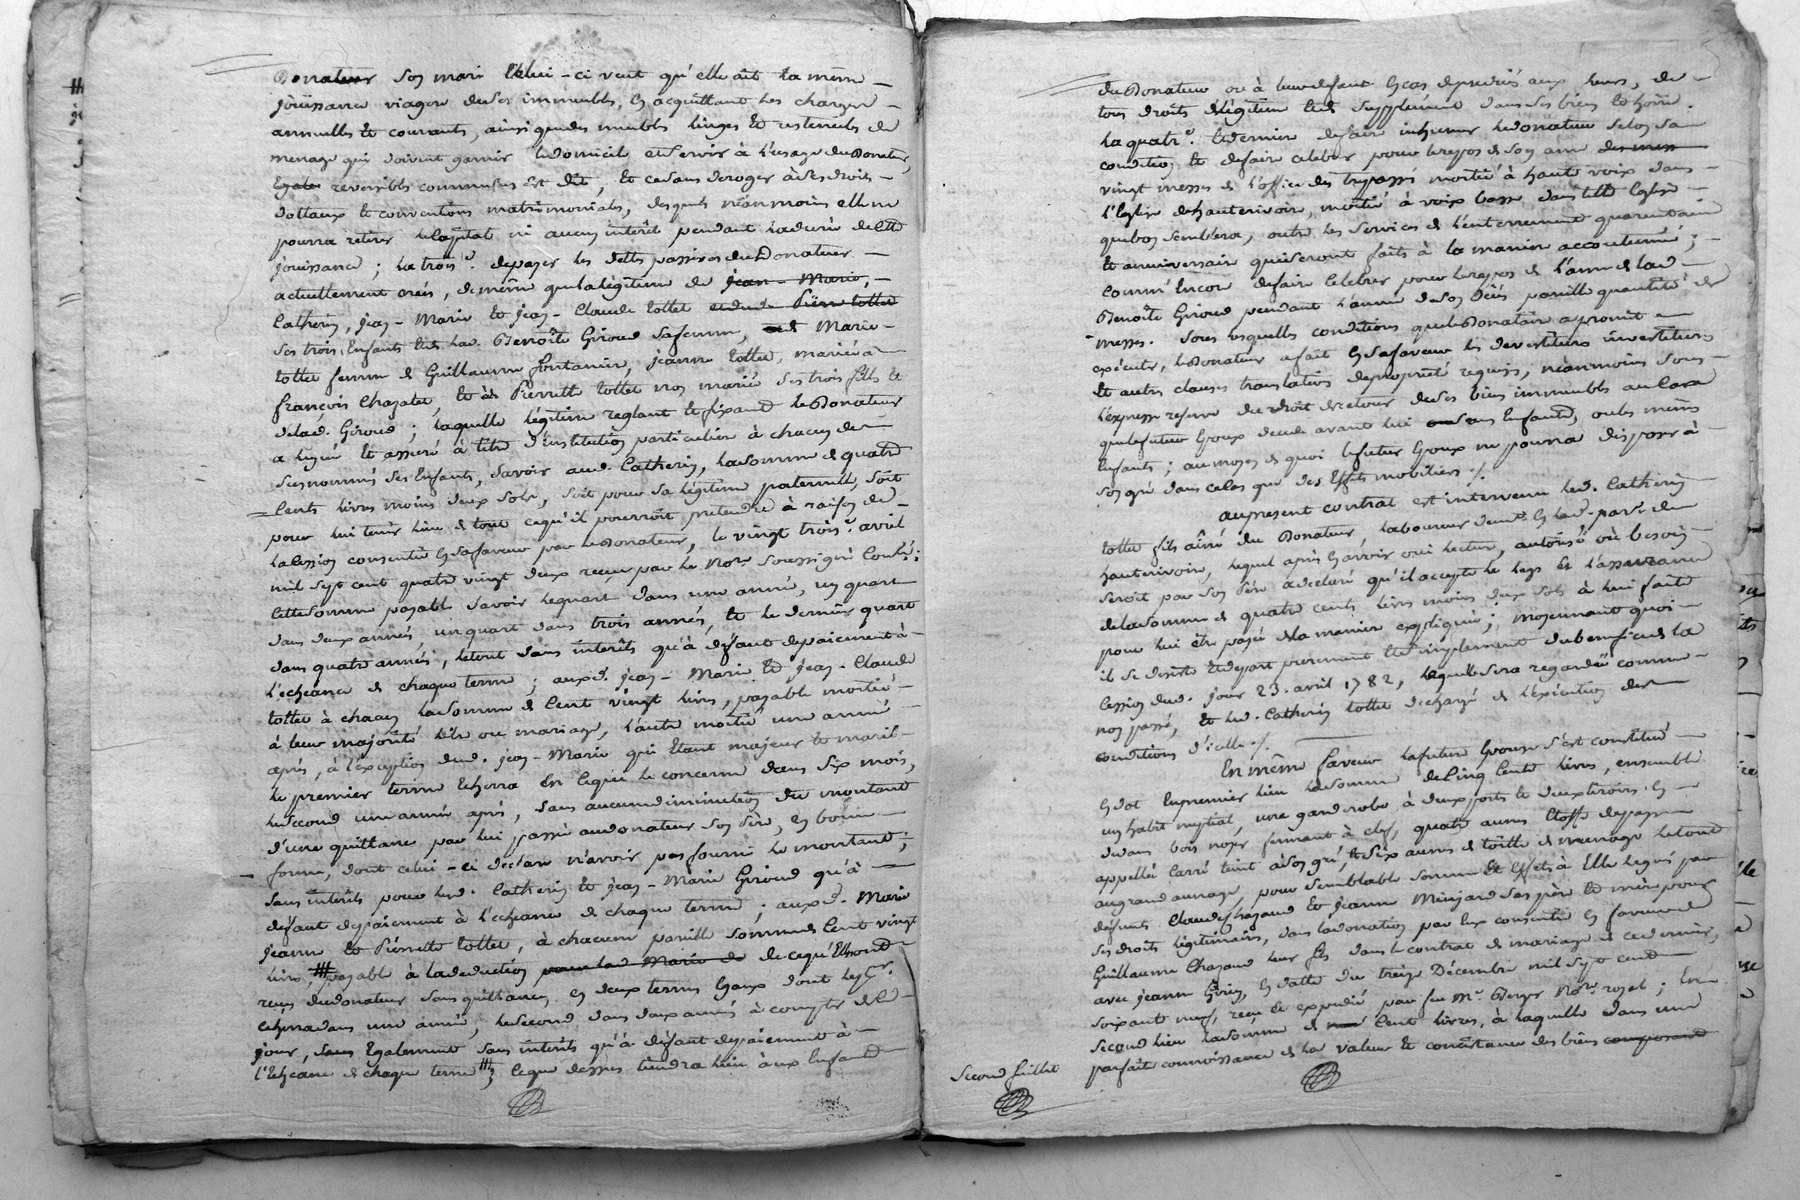 Donateur son mari Celui-ci veut qu'elle ait la même
jouissance viagere de ses immeubles, en acquittant les charges
annuelles et courantes, ainsi que des meubles linges et ustensils de
menage qui doivent garnir le domicile et servir à l'usage du Donateur,
reversibles comme est dit, et ce sans deroger à ses droits
dottaux et conventions matrimoniales, desquels néanmoins elle ne
pourra retirer le capital ni aucun intérêt pendant la durée de cette
jouissance; la trois.e de payer les dettes passives du Donateur
actuellement créés, de même que la légitime de jean-Marie,
Catherin, jean-Marie et jean-Claude tottet et de Pierre tottet
ses trois Enfants et de lad. Benoîte Giroud sa femme, Marie
tottet femme de Guillaume fontanier, jeanne tottet, mariée à
françois Chazalet, et à Pierrette tottet non mariée ses trois filles et
de lad. Giroud; laquelle légitime reglant et fixant le Donateur
a legué et assuré à titre d'institution particuliere à chacun de
sesnommés ses Enfants, savoir aud. Catherin, la somme de quatre
Cents livres moins deux sols, soit pour sa légitime paternelle, soit
pour lui tenir lieu de tout ce qu'il pourroit pretendre à raison de
la Cession consentie en sa faveur par le Donateur, le vingt trois.e avril
mil sept cent quatre vingt deux reçue par le No.re soussigné Contr.é;
cette somme payable savoir le quart dans une année, un quart
dans deux années, un quart dans trois années, et le dernier quart
dans quatre années, le tout sans intérêts qu'à défaut de paiement à
l'echéance de chaque terme; auxd. jean-Marie et jean-Claude
tottet à chacun la somme de Cent vingt livres, payable moitié
à leur majorité telle ou mariage, l'autre moitié une année
après, à l'exception dud. jean-Marie qui Etant majeur et marié
le premier terme Echerra En ce qui le concerne dans six mois,
le second une année après, sans aucune diminution du montant
d'une quittance par lui passée au donateur son père, en bonne
forme, dont celui-ci declare n'avoir pas fourni le montant;
sans intérêts pour led. Catherin et jean-Marie Giroud qu'à
défaut de paiement à l'echeance de chaque terme; auxd. Marie
jeanne et Pierrette tottet, à chacune pareille somme de Cent vingt
livres, payable à la deduction pour lad Marie de de ce qu'Elle ont
reçu du donateur sans quittance, en deux termes Egaux dont le p.er
echerra dans une année, le second dans deux années à compter de ce
jour, sans Egalement sans intérêts qu'à défaut de paiement à
l'Echeance de chaque terme; ce que dessus tiendra lieu à ux Enfants
du Donateur ou à leur defaut En cas de predécés aux leurs, de
tous droits de légitime et de supplement dans ses biens et hoirie.
La quatr.e et derniere de faire inhumer le donateur selon sa
condition et de faire celebrer pour le repos de son ame des mess
vingt messes de l'office des trepassés moitié à haute voix dans
l'Eglise de hauterivoire, moitié à voix basse dans telle Eglise
que bon semblera, outre les services de l'enterrement quarantaine
et anniversaire qui seront faits à la maniere accoutumée;
comme Encor de faire celebrer pour le repos de l'ame de lad.
Benoîte Giroud pendant l'année de son Décès pareille quantité de
messes. Sous lesquelles conditions que le Donataire a promit
exécuter, le Donateur a fait En sa faveur les devestitures investitures
et autres clauses translatives de propriété requises, néanmoins sous
l'expresse reserve du droit de retour de ses biens immeubles au Cas
que le futur Epoux decede avant lui sans Enfants, ou les mêmes
Enfants; au moyen de quoi le futur Epoux ne pourra disposer à
son gré dans ce cas que des Effets mobiliers./.
au present contrat est intervenu led. Catherin
tottet fils aîné du Donateur, laboureur demt. En lad. par.e de
hauterivoire, lequel après En avoir oui lecture, autorisé où besoin
seroit par son Père a declaré qu'il accepte le legs et l'assurance
de la somme de quatre cents livres moins deux sols à lui faite
pour lui être payée de la maniere expliquée; moyennant quoi
il se desiste et depart purement et simplement du benefice de la
Cession dud. jour 23. avril 1782, laquelle sera regardée comme
non passée, et led. Catherin tottet dechargé de l'exécution des
conditions d'icelle./.
En même faveur la future Epouse s'est constitué
En dot En premier lieu la somme de Cinq Cents livres, ensemble
un habit nuptial, une garderobe à deux portes et deux tiroirs. En
dudans bois noyer fermant à clef, quatre aunes Etoffe de pays
appellé Carré teint à son gré, et six aunes de toille de menage le tout
au grand aunage, pour semblable somme et Effets à Elle legués par
défunts Claude Chazaud et Jeanne Minjard ses père et mère pour
ses droits légitimaires, dans la donation par Eux consentie En faveur de
Guillaume Chazaud leur fils dans le contrat de mariage de ce dernier,
avec jeanne Giroy, En datte du treize Décembre mil sept cent
soixante neuf, reçu et expedié par feu M.e Berger No.re royal; En
second lieu la somme de Cent livres, à laquelle dans une
parfaite connoissance de la valeur et consistance des biens composant
Second feuillet